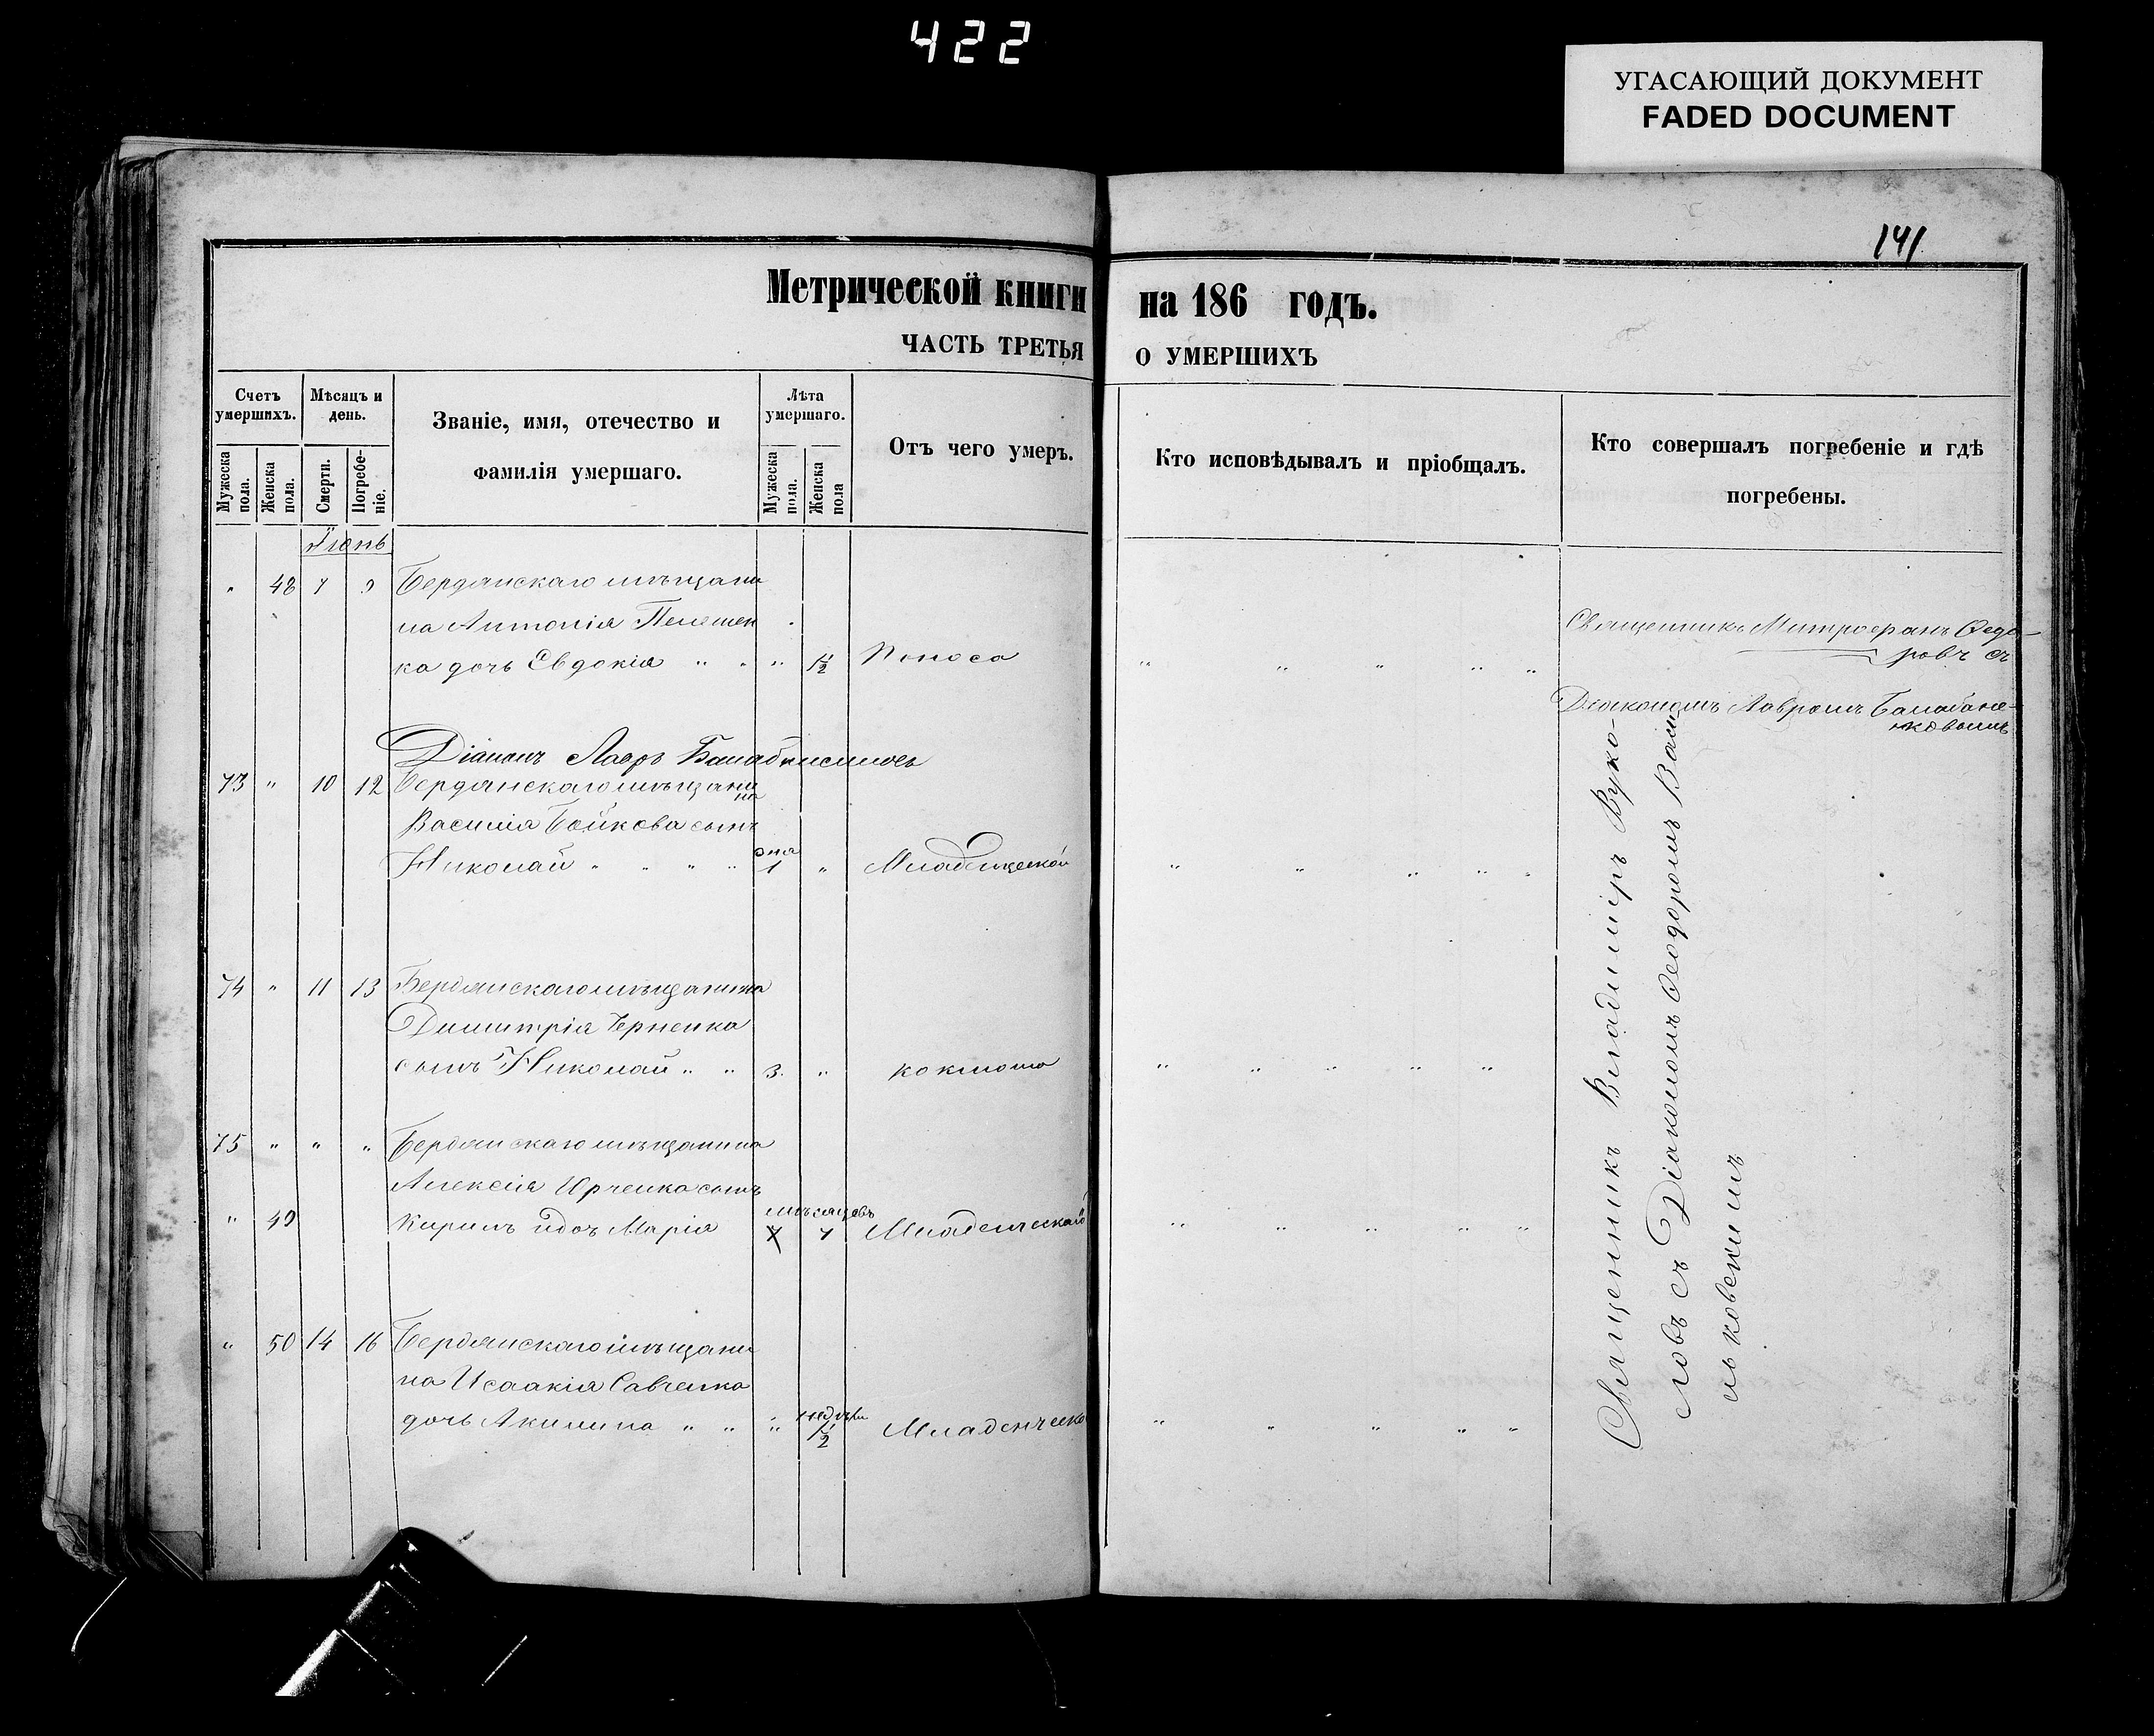 422
УГАСАЮЩИЙ ДОКУМЕНТ
FADED DOCUMENT
141
Метрической книги на 186 годъ.
ЧАСТЬ ТРЕТЬЯ О УМЕРШИХЪ
Счетъ умершихъ.
Мужеска пола.
Женска пола.
Мѣсяцъ и день.
Смерти.
Погребеніе.
Званіе, имя, отечество и фамилія умершаго.
Лѣта умершаго.
Мужеска пола.
Женска пола
Отъ чего умеръ.
Кто исповѣдывалъ и пріобщалъ.
Кто совершалъ погребеніе и гдѣ погребены.
Іюнь
" 48 7 9 Бердянскаго мѣщани
на Антонія
ка дочь Евдокія " " " 1/2 Поноса " " " " "
Священникъ Митрофанъ Федо-
ровъ съ
Діакономъ Лавромъ
Діаконъ Лавръ
73 " 10 12 Бердянскаго мѣщани
на
Василія Бойкова сынъ
Николай " " " " дня 1 " " " " " "
74 " 11 13 Бердянскаго мѣщанина
Димитрія Черненка
сынъ Николай " " 3. " " " " " "
75 " " " Бердянскаго мѣщанина
Алексія Юрченка сынъ
" 49 Кирилъ и доч Марія мѣсяцовъ 7 Младенческой " " " " "
" 50 14 16 Бердянскаго мѣщани
на Исаакія Савченка
дочь Акилина " " " недѣли 1/2 Младенческо " " " " "
Священникъ Владиміръ Вуко-
ловъ съ Діакономъ Ѳеодоромъ Васи
льковскимъ